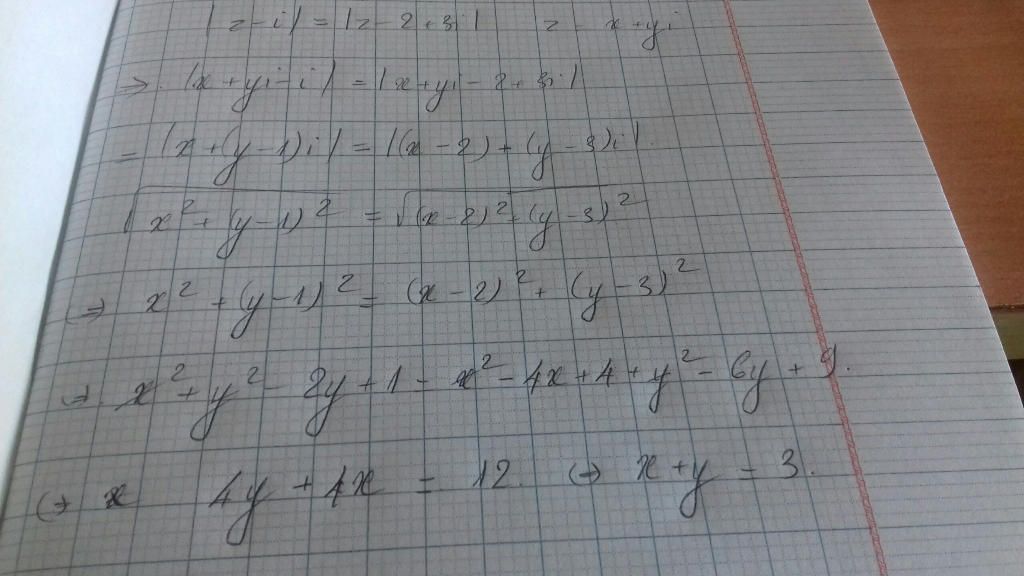 |z-i| = |z-2+3i|   z = x+yi
⇒ |x+yi-i| = |x+yi-2+3i|
= |x+(y-1)i| = |(x-2)+(y-3)i|
√(x²+(y-1)²) = √((x-2)²+(y-3)²)
⇔ x²+(y-1)² = (x-2)²+(y-3)²
⇔ x²+y²-2y+1 = x²-4x+4+y²-6y+9.
⇔ x 4y+4x = 12. ⇔ x+y = 3.